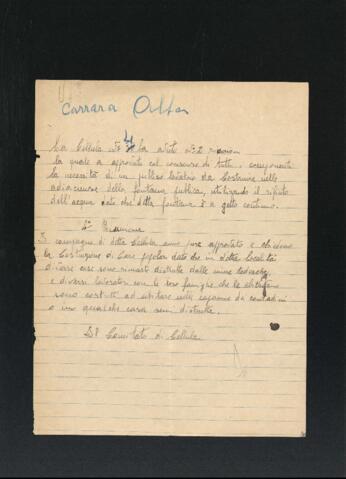 Carrara Alta
La Cellula N° 4 ha avuto N° 2 riunioni
la quale a approvato col consenso di tutti i componenti
la necessità di un publico lavatoio da costruire nelle
adiacenze della fontana publica, utilizando il rifiuto
dell'acqua dato che detta fontana è a getto continuo.
2° Riunione
I compagni di detta Cellula anno pure approvato e chiedono
la Costruzione di Case popolari dato che in detta località
diverse case sono rimaste distrutte dalle mine tedesche
e diversi lavoratori con le loro famiglie che le abitavano
sono costretti ad abitare nelle capanne da contadini
o in qualche casa semi distrutta.
Il Comitato di Cellula